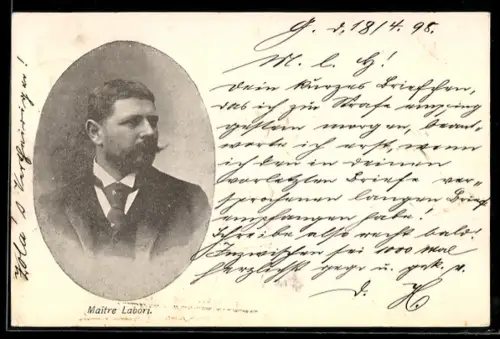 G. d. 18/4. 98.
M. l. H!
Dein kurzes Briefchen,
das ich zur Strafe empfing
gestern morgen, beant-
worte ich erst, wenn
ich den in deinem
vorletzten Briefe ver-
sprochenen langen Brief
empfangen habe!
Schreibe also recht bald.
Inzwischen sei 1000 mal
herzlichst gegr. u. gek. v.
d. H.
Zola's Verteidiger!
Maître Labori.